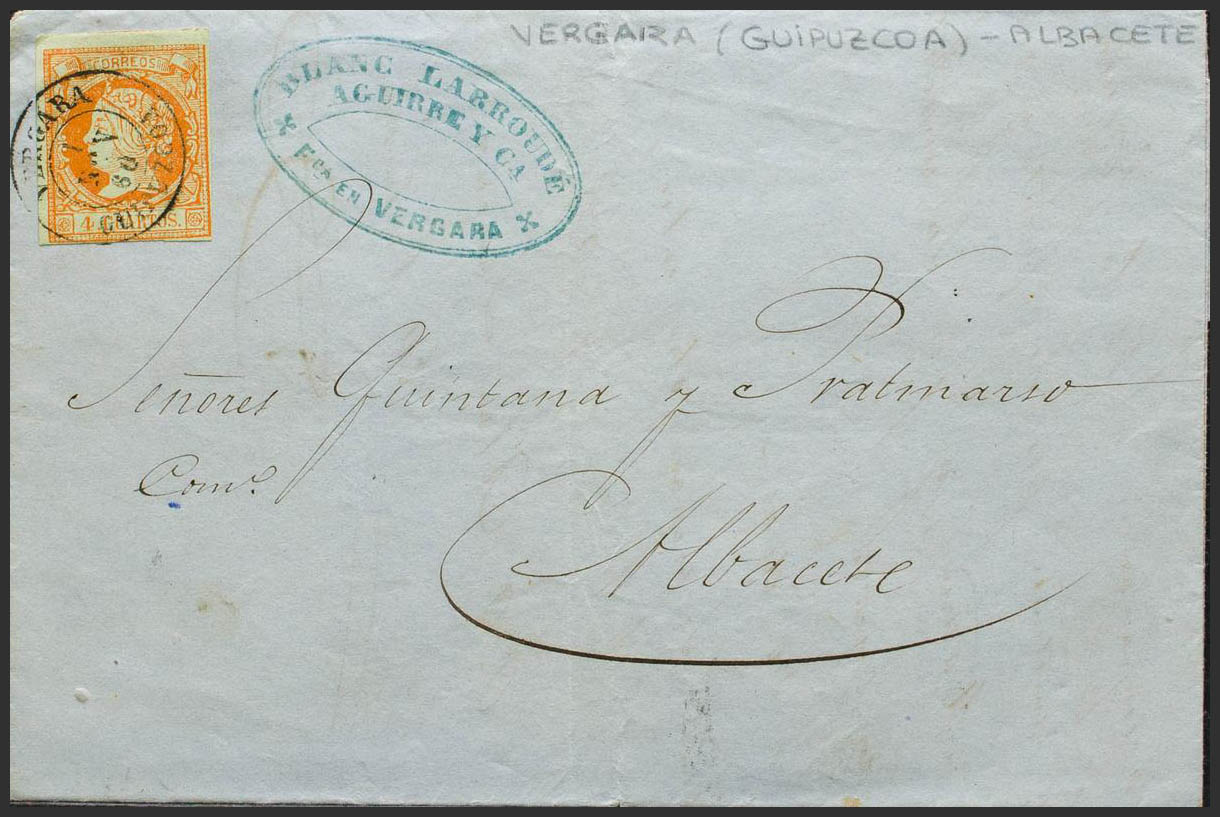 VERGARA (GUIPUZCOA) - ALBACETE
CORREOS
4 CUARTOS.
VERGARA
60
BLANC LABROUDÉ
AGUIRRE Y CA
Fca EN VERGARA
Señores Quintana y Pratmarso
Como.
Albacete